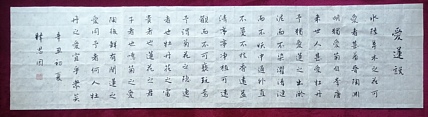 愛蓮說
水陸草木之花可
愛者甚蕃晉陶淵
明獨愛菊自李唐
來世人甚愛牡丹
予獨愛蓮之出淤
泥而不染濯清漣
而不妖中通外直
不蔓不枝香遠益
清亭亭淨植可遠
觀而不可褻玩焉
予謂菊花之隱逸
者也牡丹花之富
貴者也蓮花之君
子者也噫菊之愛
陶後鮮有聞蓮之
愛同予者何人牡
丹之愛宜乎眾矣
辛丑初夏